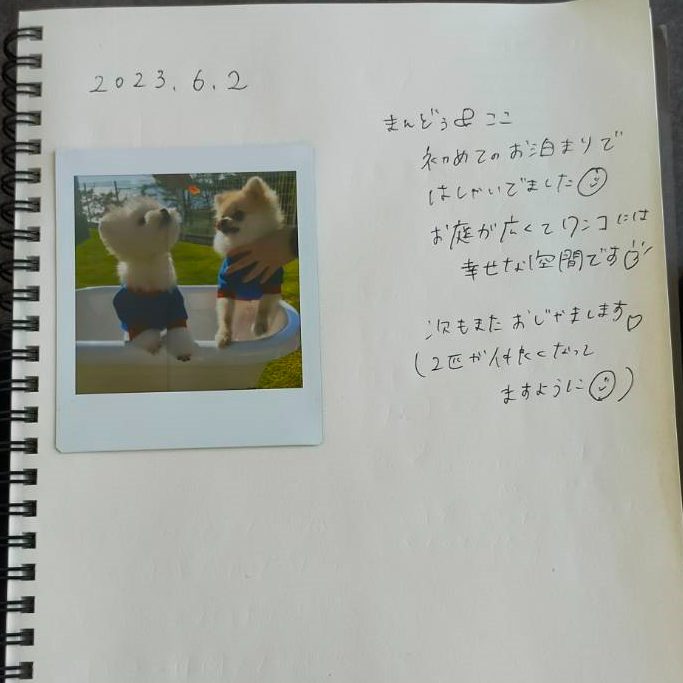 2023.6.2
まんどぅ&ここ
初めてのお泊まりで
はしゃいでました
お庭が広くてワンコには
幸せな空間です
次もまたおじゃまします♡
(2匹が仲良くなって
ますように)